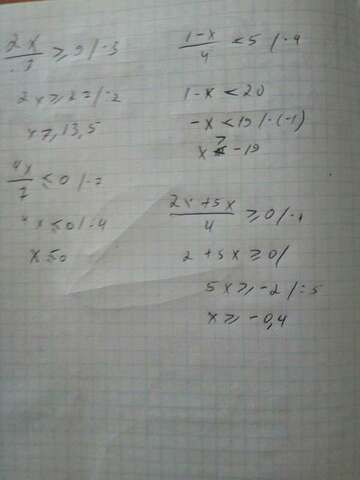 2x/3 ≥ 9 /·3
2x ≥ 27 /:2
x ≥ 13,5
4x/7 ≤ 0 /·7
4x ≤ 0 /:4
x ≤ 0
1-x/4 < 5 /·4
1-x < 20
-x < 19 /·(-1)
x > -19
2+5x/4 ≥ 0 /·4
2+5x ≥ 0 /
5x ≥ -2 /:5
x ≥ -0,4